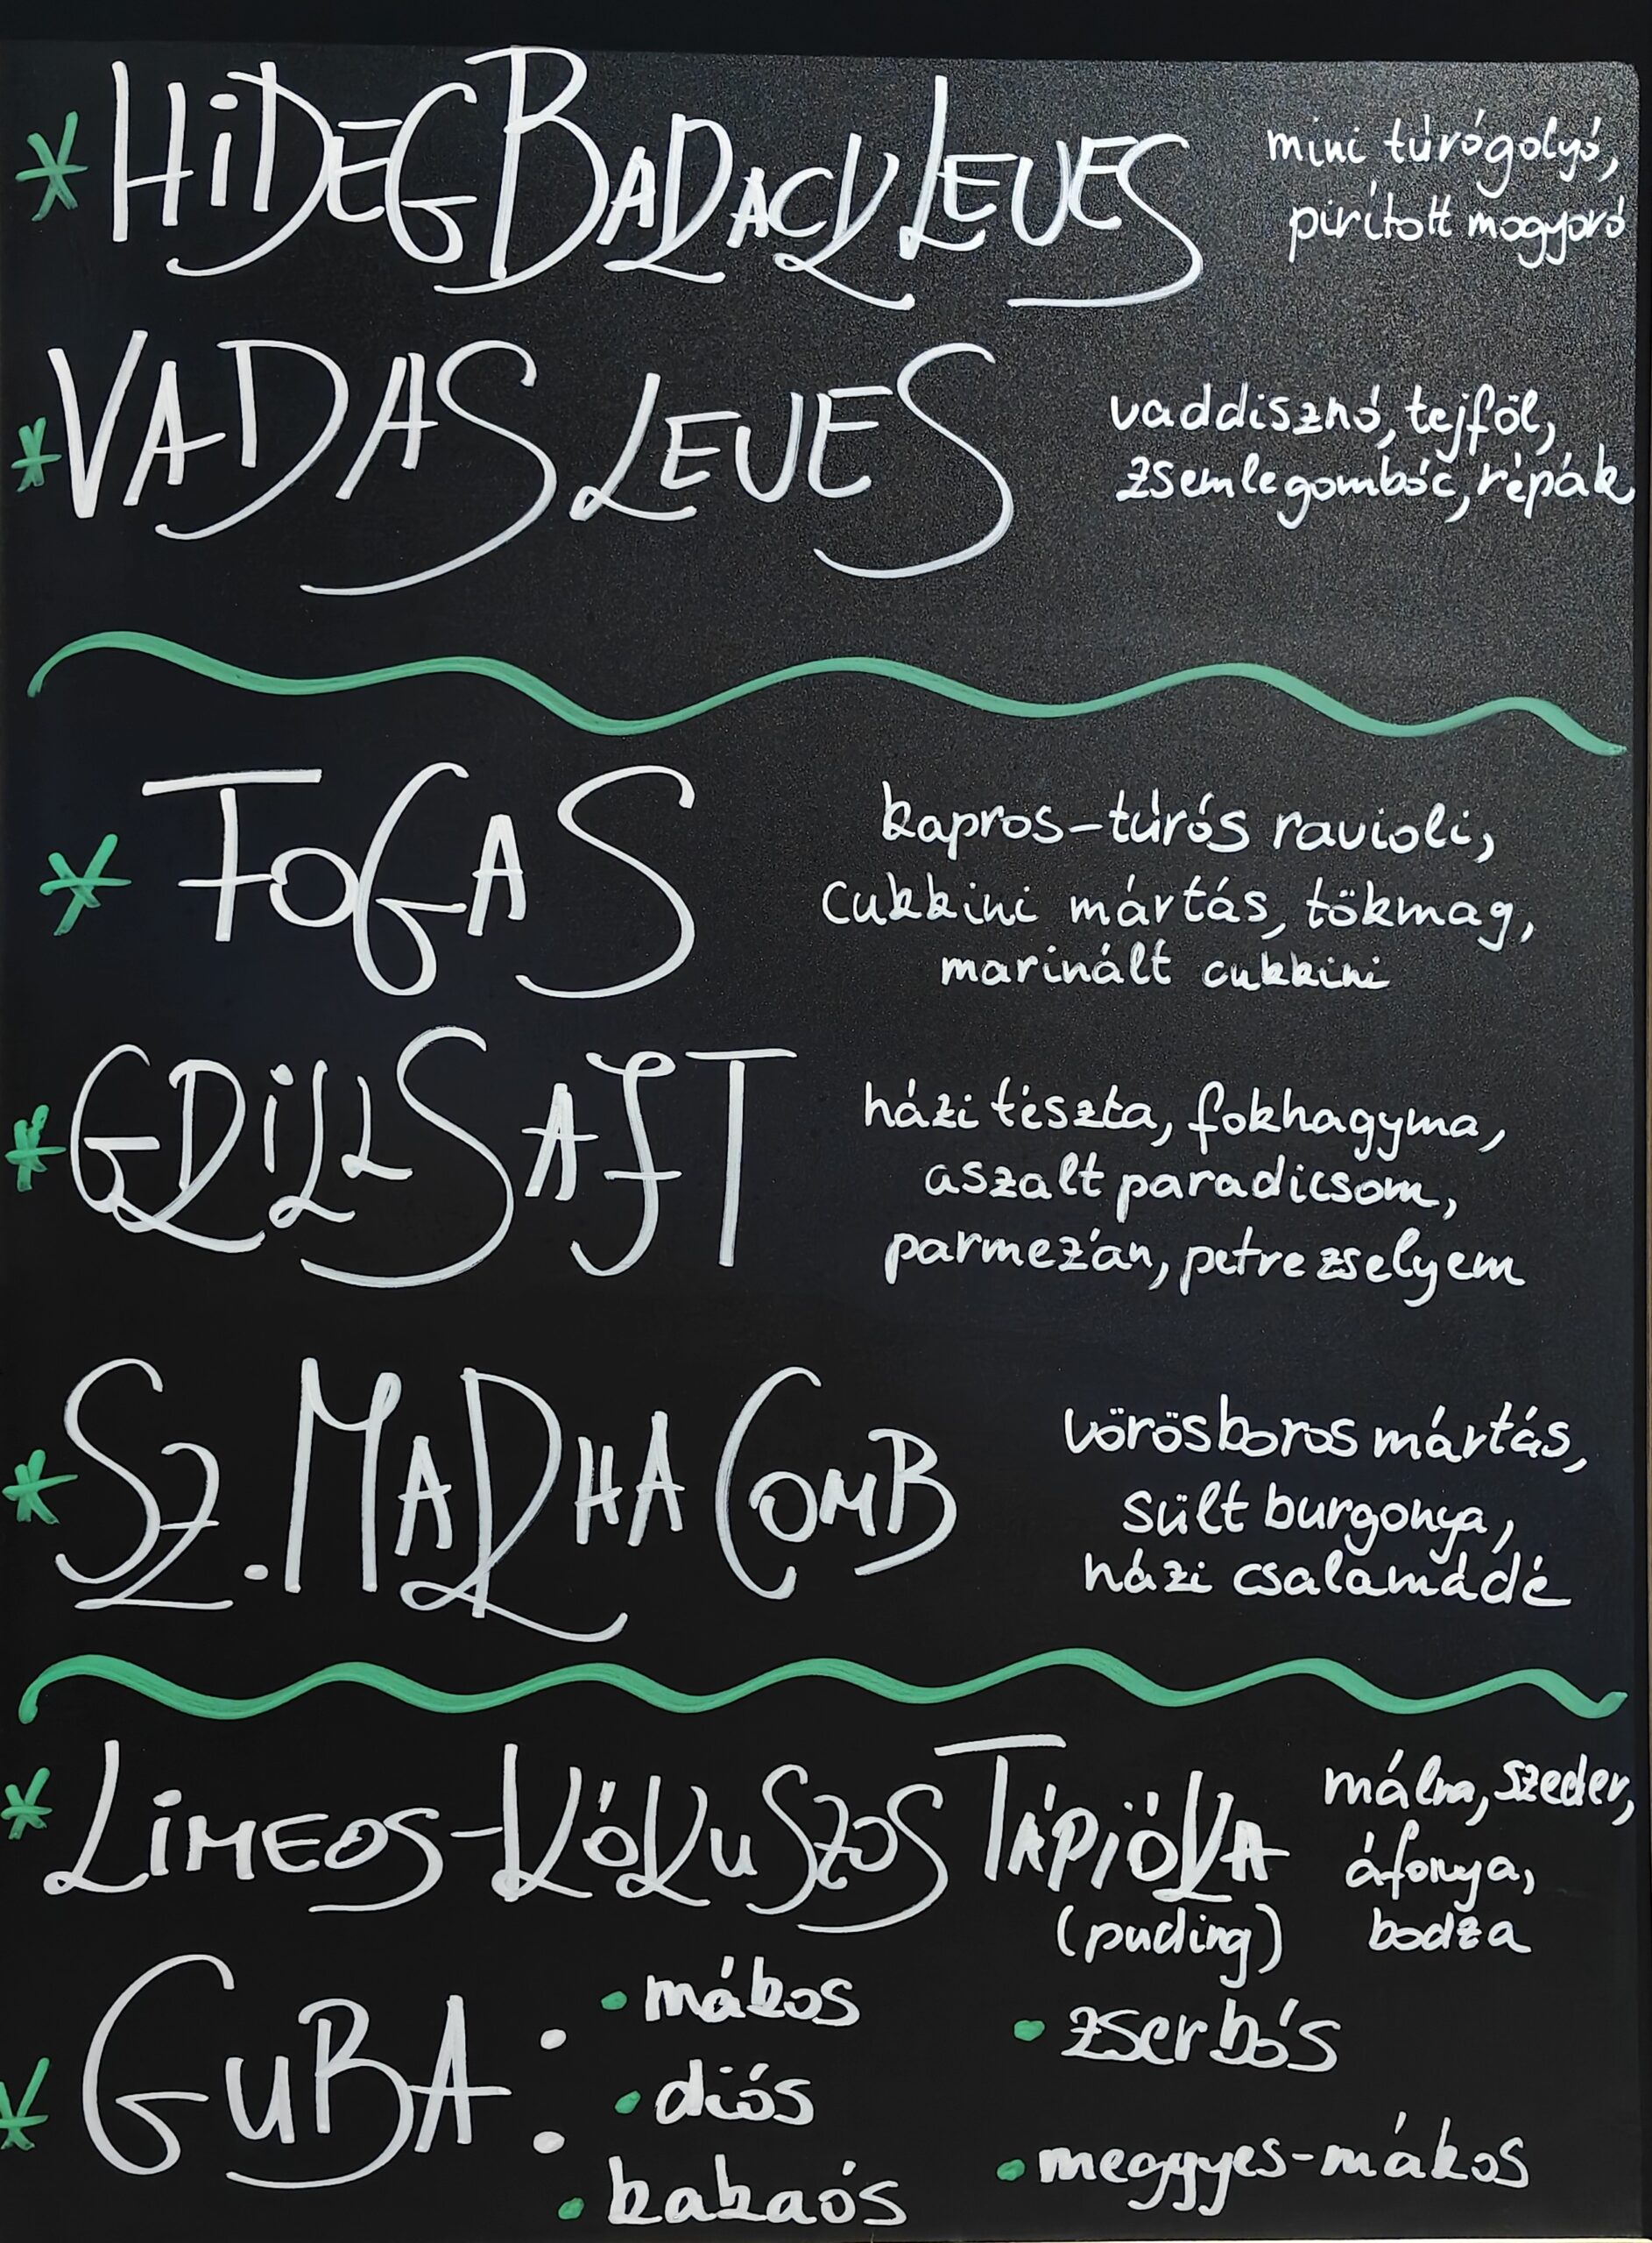 HiDEG BARACKLEVES
mini túrógolyó,
pirított mogyoró
VADAS LEVES
vaddisznó, tejföl,
zsemlegombóc, répák
FOGAS
kapros-túrós ravioli,
cukkini mártás, tökmag,
marinált cukkini
GRiLLSAJT
házi tészta, fokhagyma,
aszalt paradicsom,
parmezán, petrezselyem
SZ. MARHA COMB
vörösboros mártás,
sült burgonya,
házi csalamádé
LiMEOS-KÓKUSZOS TÁPiÓKA
(puding)
málna, szeder,
áfonya,
bodza
GUBA:
• mákos
• diós
• kakaós
• zserbós
• meggyes-mákos